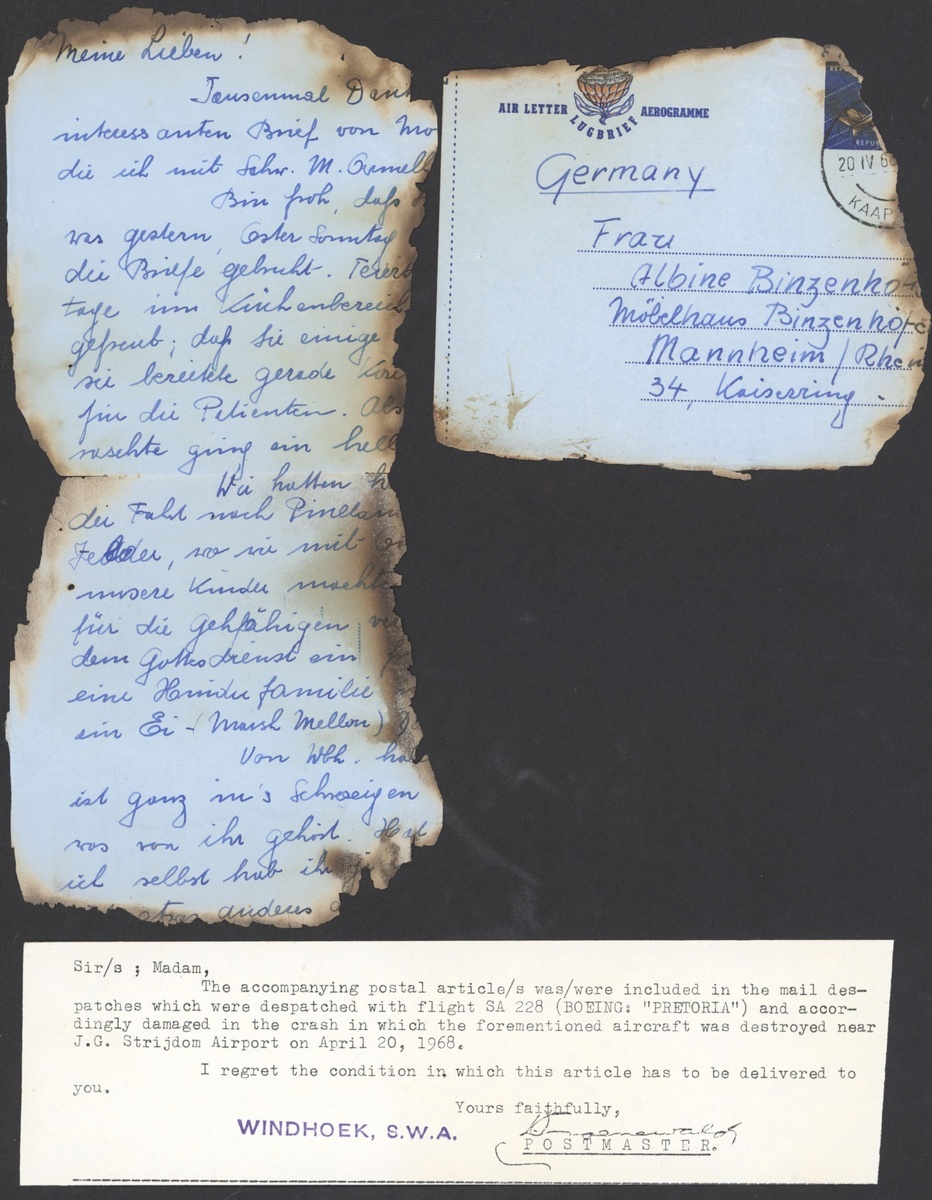 Meine Lieben!
Tausenmal Dank
interessanten Brief von Mo
die ich mit Schw. M.
Bin froh, daß
was gestern, Oster Sonntag
die Briefe gebracht. Feiert
tage im Küchenbereich
gefreut; daß sie einige
sie bereitete gerade
für die Patienten. Als
raschte ging ein hell
Wir hatten
die Fahrt nach Pinelan
Felder, wo wir mit
unsere Kinder machte
für die Gehfähigen
dem Gottesdienst ein
eine Hindu familie
ein Ei - (Marsh Mellon)
Von Wbh. ha
ist ganz in's Schweigen
was von ihr gehört. Hat
ich selbst hab ihr
etwas anderes
AIR LETTER LUGBRIEF AEROGRAMME
REPUB
20 IV 6
KAAP
Germany
Frau
Albine Binzenhö
Möbelhaus Binzenhöfe
Mannheim / Rhein
34, Kaiserring.
Sir/s ; Madam,
The accompanying postal article/s was/were included in the mail des-
patches which were despatched with flight SA 228 (BOEING: "PRETORIA") and accor-
dingly damaged in the crash in which the forementioned aircraft was destroyed near
J.G. Strijdom Airport on April 20, 1968.
I regret the condition in which this article has to be delivered to
you.
Yours faithfully,
WINDHOEK, S.W.A.
POSTMASTER.